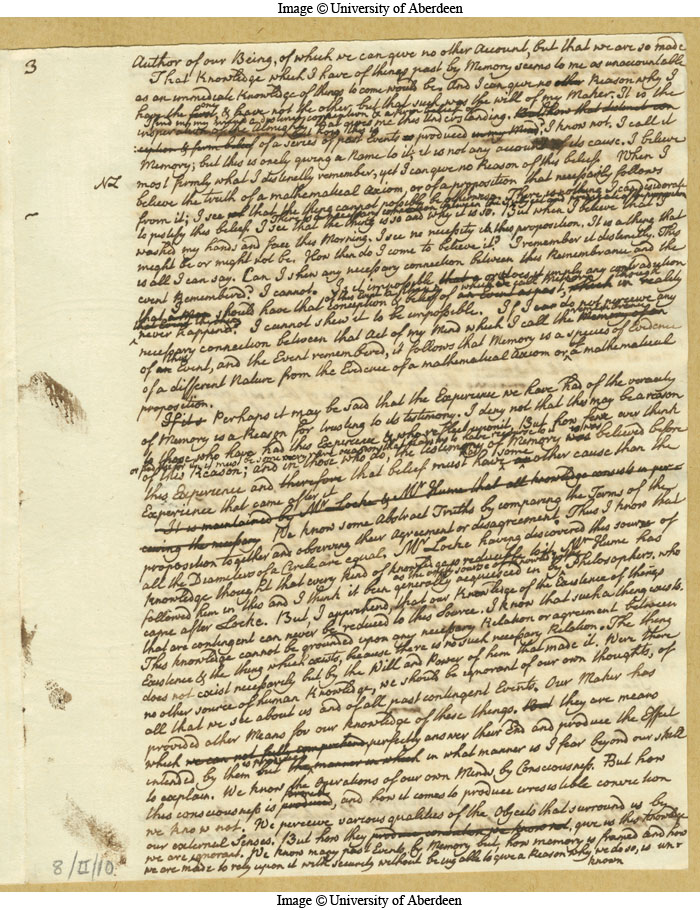 Image © University of Aberdeen
3
Author of our Being, of which we can give no other Account, but that we are so made
That Knowledge which I have of things past by Memory seems to me as unaccountable
as an immediate Knowledge of things to come would be. And I can give no other Reason why I
have the first one, & have not the other, but that such was the will of my Maker. It is the
I find in my mind a distinct conception & a firm belief
inspiration of the Almighty that gives me this Understanding. But how that distinct con
ception & firm belief of a series of past Events is produced in my Mind, I know not. I call it
but how this is
Memory; but this is onely giving a Name to it; it is not any account of its cause. I believe
most firmly what I distinctly remember, yet I can give no Reason of this belief. When I
NL
believe the truth of a mathematical Axiom, or of a proposition that necessarily follows
from it; I see that the thing cannot possibly be otherwise.
to justify this belief I see that the thing is so and why it is so. But when I believe that I
washed my hands and face this Morning. I see no necessity in this proposition. It is a thing that
might be or might not be. How then do I come to believe it? I remember it distinctly. This
is all I can say. Can I shew any necessary connection between this Remembrance and the
event Remembered? I cannot. Is it impossible that or does it imply any contradiction
that should have that conception & belief of which we call Memory, though in reality
never happened? I cannot shew it to be impossible. If I do not perceive any
necessary connection between that Act of my Mind which I call the
of an Event, and the Event remembred, it follows that Memory is a species of Evidence
of a different Nature from the Evidence of a mathematical Axiom or of a mathematical
proposition.
If it Perhaps it may be said that the Experience we have had of the veracity
of Memory is a Reason for trusting to its testimony. I deny not that this may be a reason
to those who have had this Experience & who reflect upon it. But how few ever think
or perhaps it must be some very rare occasion that leads any to have recourse to it
of this Reason; and in those who do, the testimony of Memory was believed before
this Experience and therefore that belief must have some other cause than the
Experience that came after it
It is maintained by Mr Locke & Mr Hume that all knowledge consists in per-
ceiving the necessary We know some Abstract Truths by comparing the Terms of the
proposition together and observing their Agreement or disagreement. Thus I know that
all the Diameters of a Circle are equal. Mr Locke having discovered this source of
Knowledge thought that every kind of Knowledge is reducible to it, Mr Hume has
followed him in this and I think it been generally acquiesced in by Philosophers, who
as the only source of knowledge
came after Locke. But, I apprehend, that our Knowledge of the Existence of things
that are contingent can never be reduced to this Source. I know that such a thing exists.
This knowledge cannot be grounded upon any necessary Relation or agreement between
Existence & the thing which exists, because there is no such necessary Relation. The thing
does not exist necessarily but by the Will and Power of him that made it. Were there
no other source of human Knowledge, we should be ignorant of our own thoughts, of
all that we see about us and of all past contingent Events. Our Maker has
provided other Means for our knowledge of these things. they are means
which we can not fully comprehend perfectly answer their End and produce the Effect
intended by them but the manner in which in what manner is I fear beyond our skill
to explain. We know the Operations of our own Minds by Consciousness. But how
this consciousness is produced, and how it comes to produce irresistible conviction
we know not. We perceive various qualities of the Objects that surround us by
our external Senses. But how they produce we know not, give us this Knowledge
we are ignorant. We know many past Events by Memory but, how memory is framed and how
we are made to rely upon it with security without being able to give a Reason why we do so, is un-
known
8/II/10.
Image © University of Aberdeen